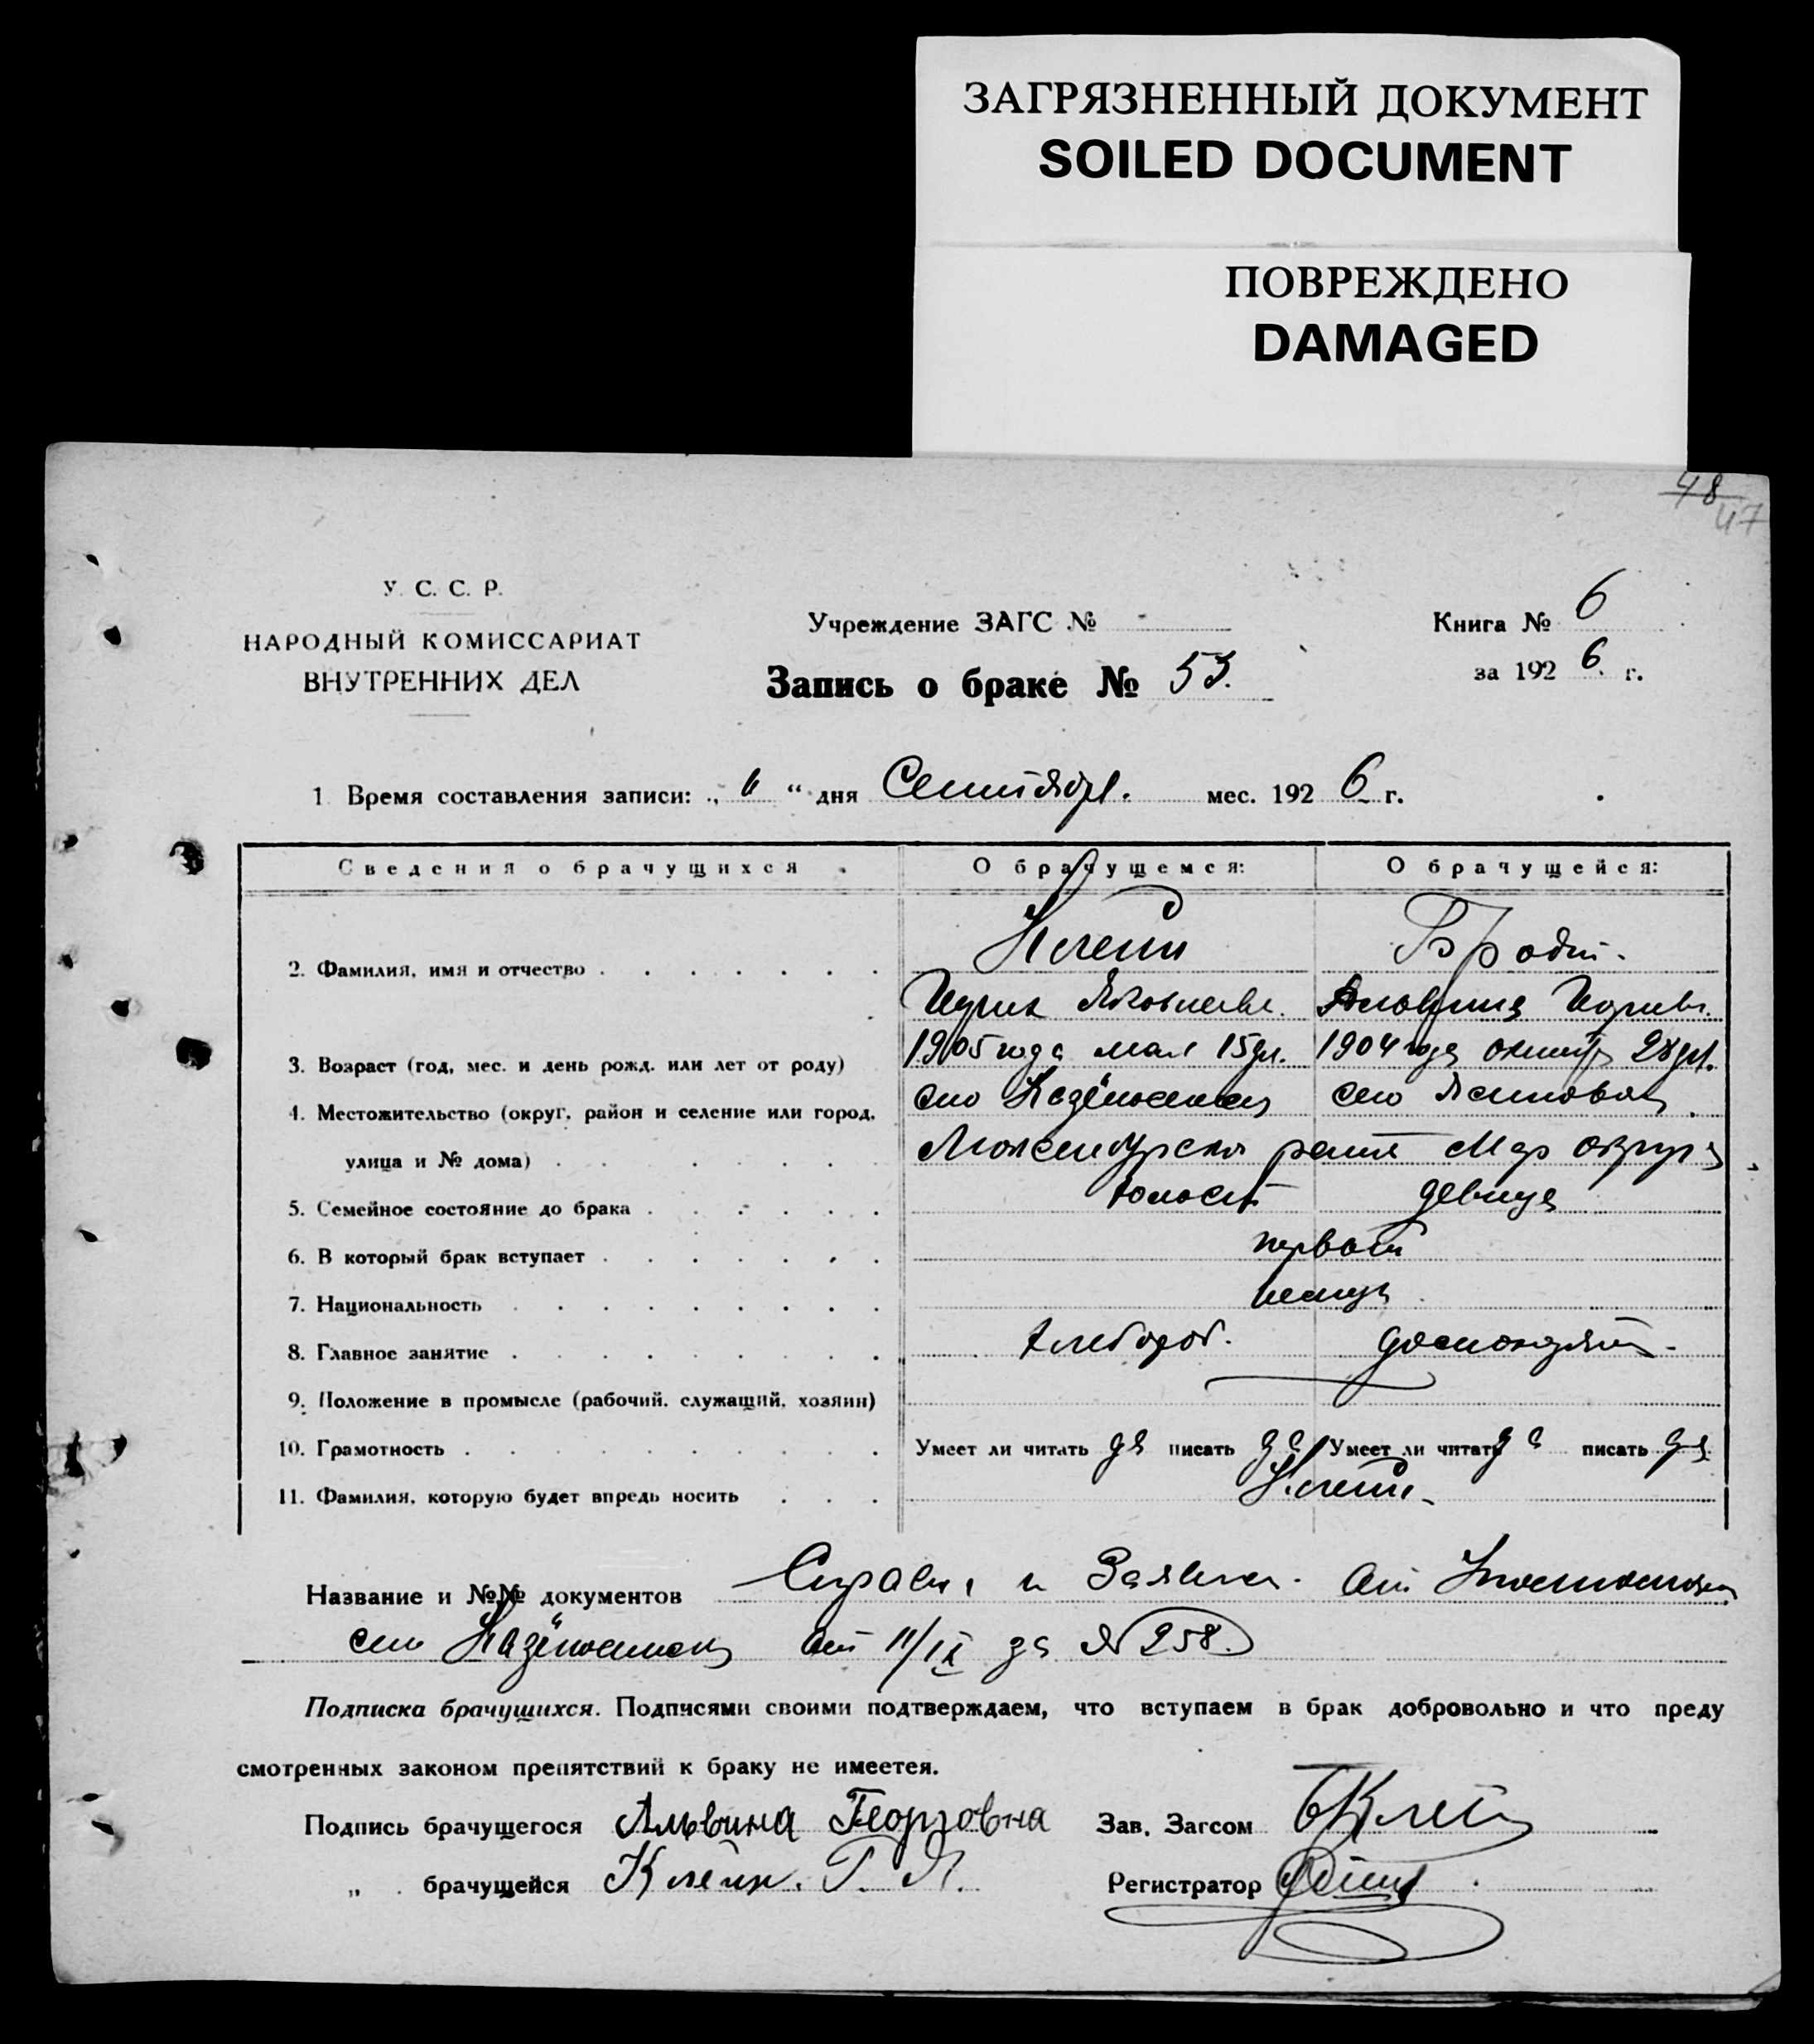 ЗАГРЯЗНЕННЫЙ ДОКУМЕНТ
SOILED DOCUMENT
ПОВРЕЖДЕНО
DAMAGED
48
47
У. С. С. Р.
НАРОДНЫЙ КОМИССАРИАТ
ВНУТРЕННИХ ДЕЛ
Учреждение ЗАГС №
Запись о браке № 53.
Книга № 6
за 1926 г.
1 Время составления записи: „ 11 “ дня Сентября. мес. 1926 г.
Сведения о брачущихся О брачущемся: О брачущейся:
2. Фамилия, имя и отчество Клейн
931
1905 года мая 15 дн. 1904 года 28 дн.
3. Возраст (год, мес. и день рожд. или лет от роду)
село село
4. Местожительство (округ, район и селение или город,
улица и № дома) Люксембургско Мар округа
5. Семейное состояние до брака холост девица
6. В который брак вступает первый
7. Национальность немцы
8. Главное занятие хлебороб. домохозяй.
9. Положение в промысле (рабочий, служащий, хозяин)
10. Грамотность Умеет ли читать да писать да Умеет ли читать да писать да
11. Фамилия, которую будет впредь носить Клейн.
Название и №№ документов и от
от 11/IX за № 258.
Подписка брачущихся. Подписями своими подтверждаем, что вступаем в брак добровольно и что преду
смотренных законом препятствий к браку не имеетея.
Подпись брачущегося Альвина Георговна Зав. Загсом Клейн
„ брачущейся Клейн. Г. Я. Регистратор